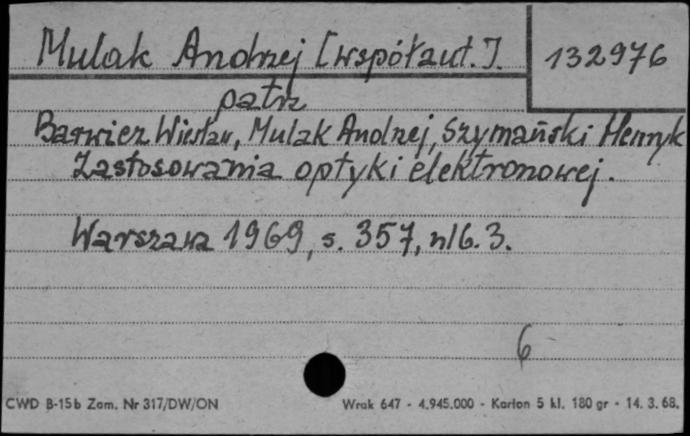 Mulak Andrzej [współaut.].
132976
patrz
Barwicz Wiesław, Mulak Andrzej, Szymański Henryk
Zastosowania optyki elektronowej.
Warszawa 1969, s. 357, nlb. 3.
6
CWD B-15b Zam. Nr 317/DW/ON
Wrak 647 - 4.945.000 - Karton 5 kl. 180 gr - 14. 3. 68.